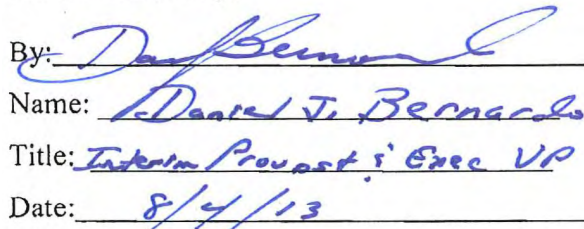 By: Dan Bernardo
Name: Daniel J. Bernardo
Title: Interim Provost & Exec VP
Date: 8/4/13